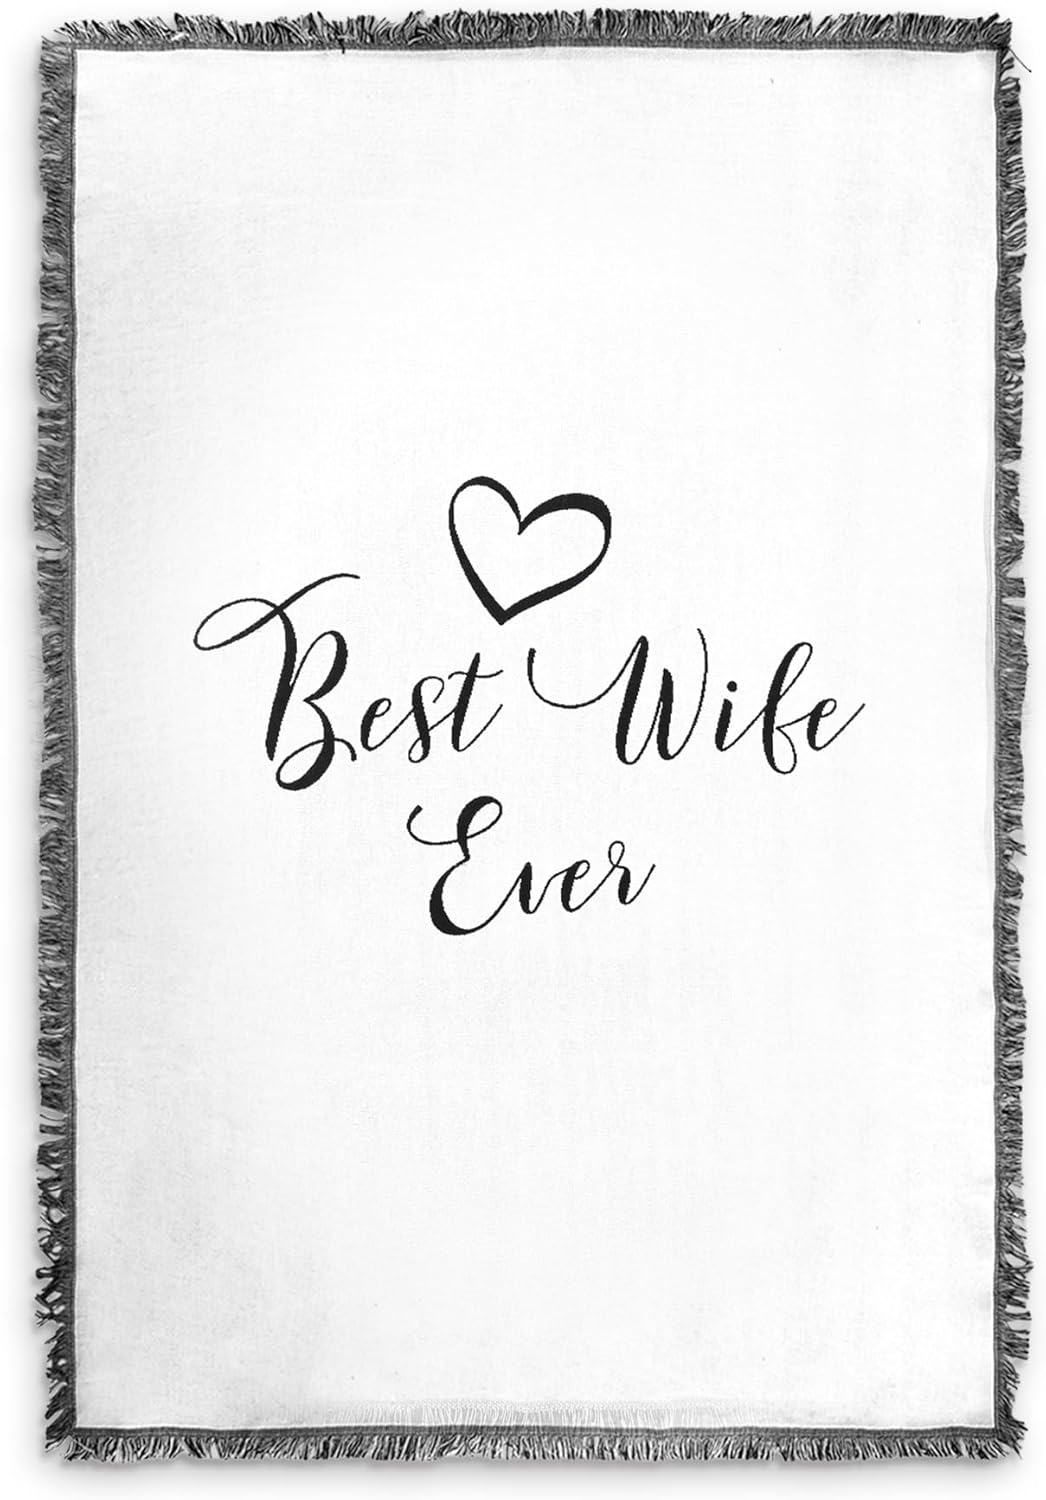 Best Wife
Ever